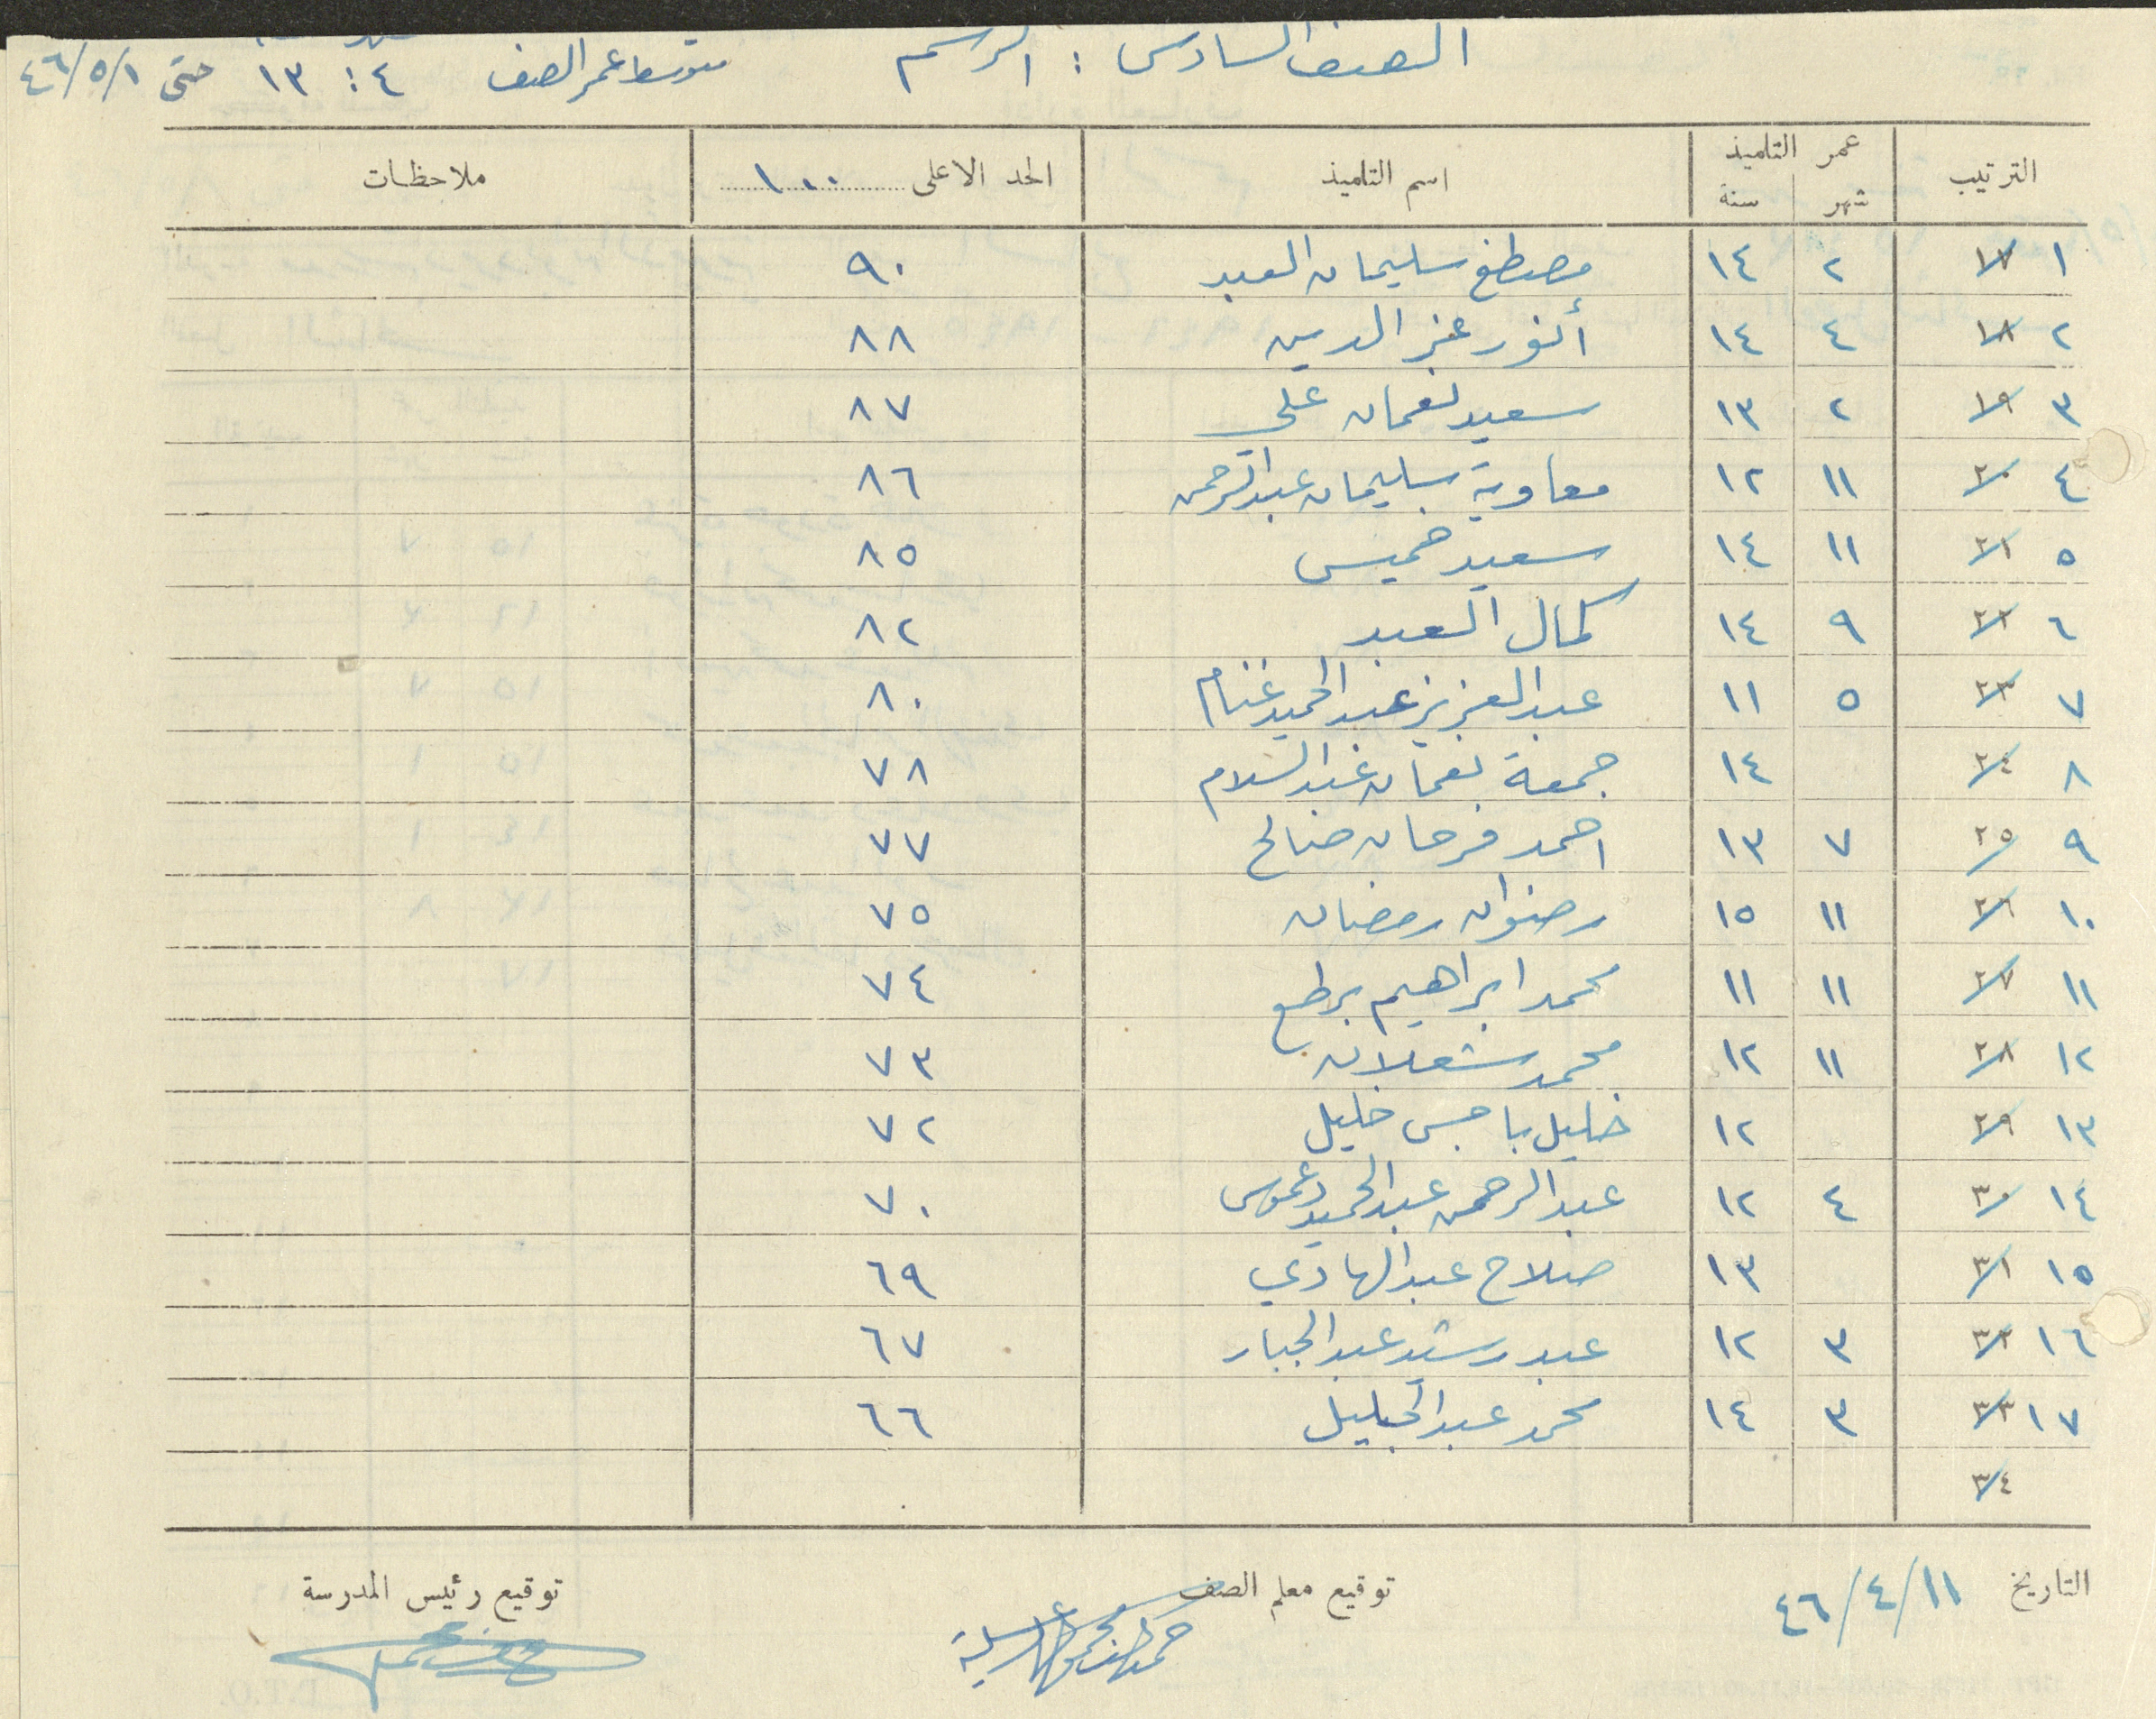 الصف السادس : الرسم متوسط عمر الصف ٤ : ١٣ حتى ٤٦/٥/١
الترتيب عمر التلميذ اسم التلميذ الحد الاعلى ١٠٠ ملاحظات
شهر سنة
١ ١٧ ٢ ١٤ مصطفى سليمان العبد ٩٠
٢ ١٨ ٤ ١٤ أنور عز الدين ٨٨
٣ ١٩ ٢ ١٣ سعيد نعمان علي ٨٧
٤ ٢٠ ١١ ١٢ معاوية سليمان عبد الرحمن ٨٦
٥ ٢١ ١١ ١٤ سعيد خميس ٨٥
٦ ٢٢ ٩ ١٤ كمال العبد ٨٢
٧ ٢٣ ٥ ١١ عبد العزيز عبد الحميد غنام ٨٠
٨ ٢٤ ١٤ جمعة نعمان عبد السلام ٧٨
٩ ٢٥ ٧ ١٣ احمد فرحان صالح ٧٧
١٠ ٢٦ ١١ ١٥ رضوان رمضان ٧٥
١١ ٢٧ ١١ ١١ محمد ابراهيم برطع ٧٤
١٢ ٢٨ ١١ ١٢ محمد شعلان ٧٣
١٣ ٢٩ ١٢ خليل باجس خليل ٧٢
١٤ ٣٠ ٤ ١٢ عبد الرحمن عبد الحميد دعموس ٧٠
١٥ ٣١ ١٣ صلاح عبد الهادي ٦٩
١٦ ٣٢ ٣ ١٢ عبد رشيد عبد الجبار ٦٧
١٧ ٣٣ ٣ ١٤ محمد عبد الجليل ٦٦
٣٤
التاريخ ٤٦/٤/١١ توقيع معلم الصف توقيع رئيس المدرسة